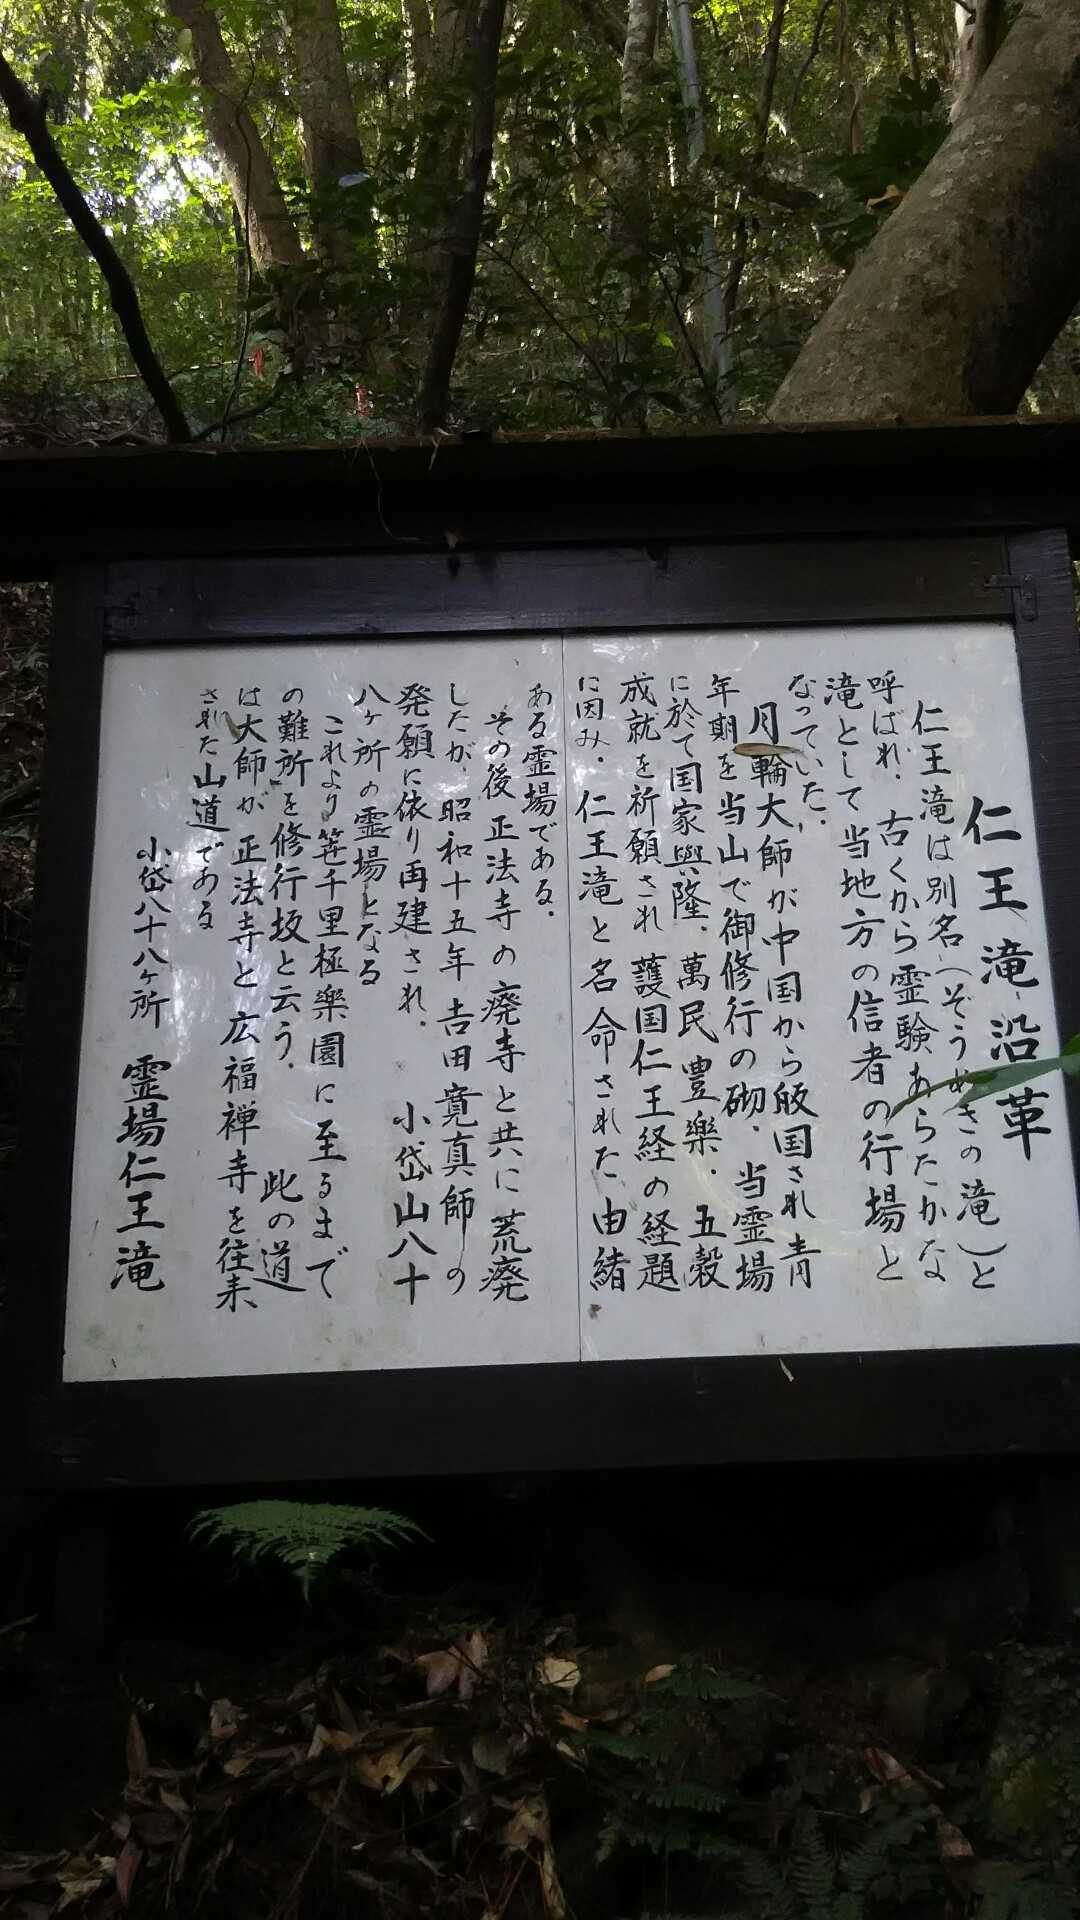 仁王滝沿革
仁王滝は別名(ぞうめきの滝)と
呼ばれ、古くから霊験あらたかな
滝として当地方の信者の行場と
なっていた。
月輪大師が中国から皈国され青
年期を当山で御修行の砌、当霊場
に於て国家興隆、萬民豊楽、五穀
成就を祈願され護国仁王経の経題
に因み、仁王滝と名命された由緒
ある霊場である。
その後正法寺の廃寺と共に荒廃
したが、昭和十五年吉田寛真師の
発願に依り再建され、小岱山八十
八ヶ所の霊場となる
これより笹千里極楽園に至るまで
の難所を修行坂と云う、此の道
は大師が正法寺と広福禅寺を往来、
された山道である
小岱八十八ヶ所 霊場仁王滝